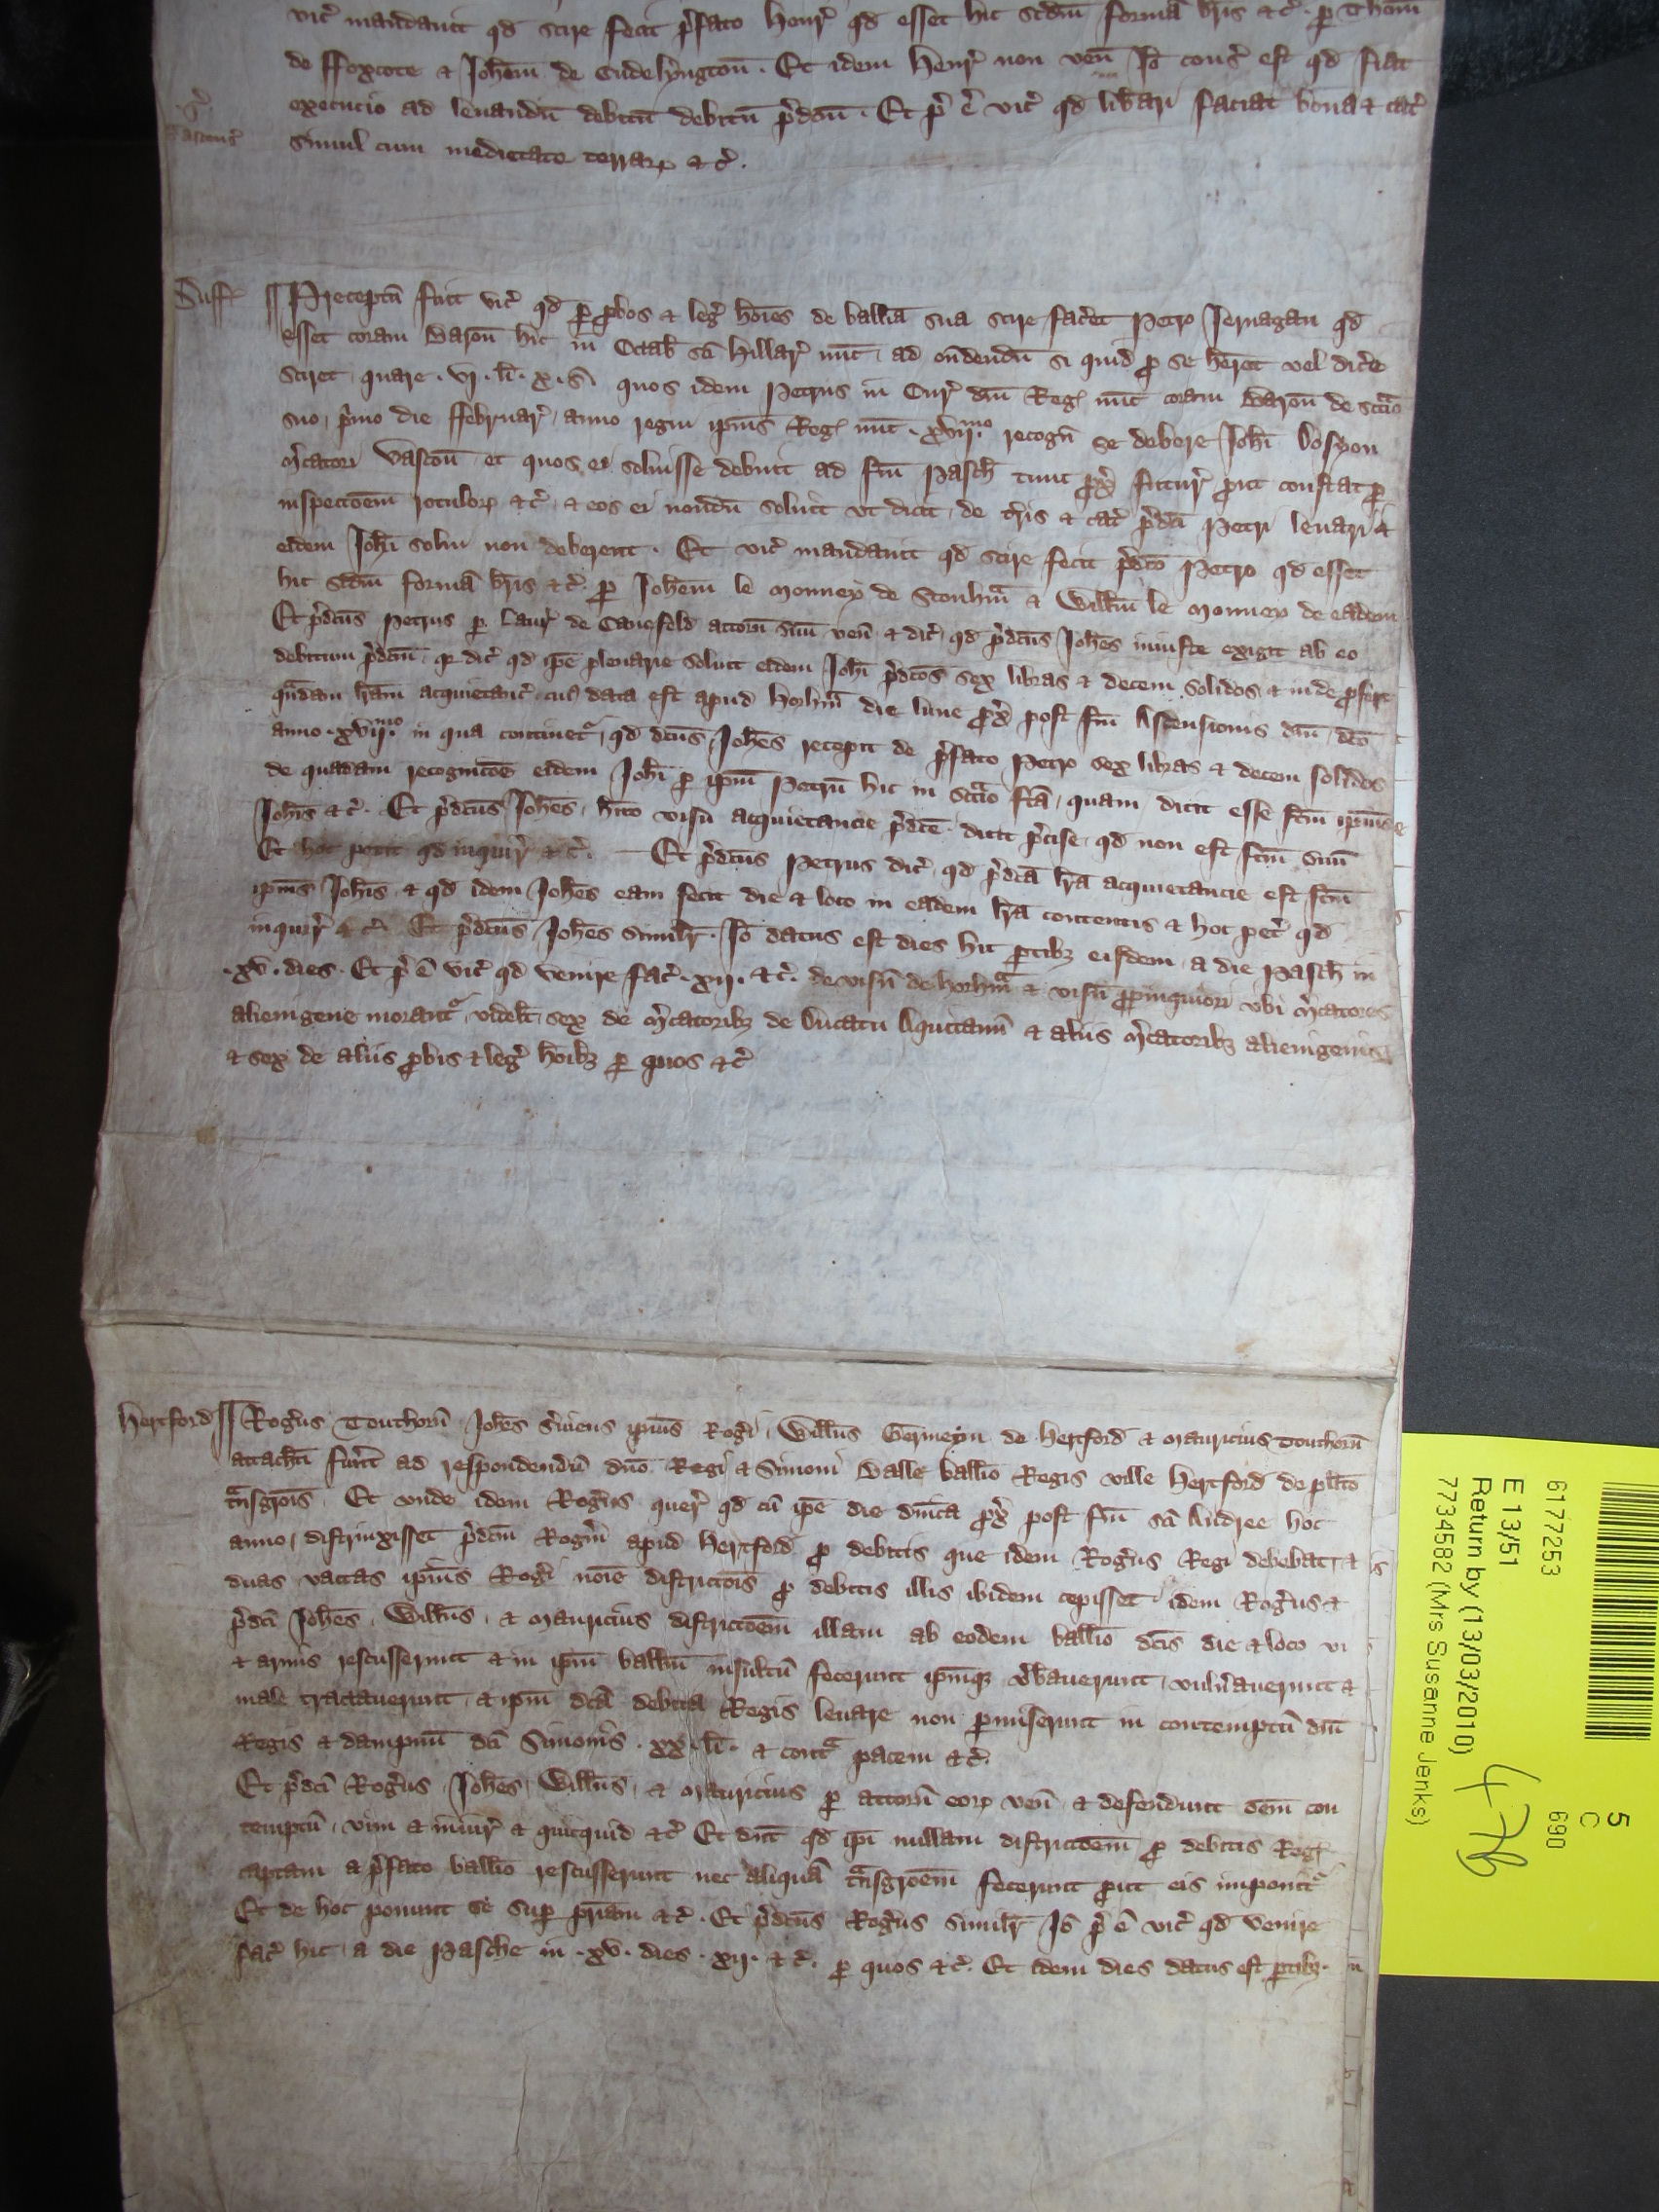 vic̃ mandauit qd scire fecit p̃fato Henr̃ qd esset hic scdm formã br̃is &c̃. p Thom̃
de ffoxcote & Joh̃em de Endelyngton̄. Et idem Henr̃ non ven̄ Jō cons̃ est qd fiat
execucio ad leuandū debitū debitū p̃dcm̄. Et p̃ ē vic̃ qd lib̃ari faciat bona & cat̃
simul cum medietate terrarꝝ &c̃.
Suff̃ Preceptū fuit vic̃ qd p p̱bos & leg̃ hōies de ballia sua scire fac̃et Petro Jernagan qd
esset coram Baron̄ hic in Octab̃ sc̃i Hillar̃ nūc ad on̄dendū si quid p̱ se h̃eret vel dic̃e
sciret quare .vj. li. x. s̃. quos idem Petrus in Cur̃ dn̄i Reg̃ nūc coram Baron̄ de scc̃io
suo, p̃mo die ffebruar̃, anno regni ip̄ius Reg̃ nūc .xviij.mo recogn̄ se debere Joh̃i Dosyon
m̃catori Vascon̄ et quos ei soluisse debuit ad fm̄ Pasch̃ tunc p̱x̃ futur̃ p̱ut constat p
inspecc̃oem̄ rotulorꝝ &c̃. & eos ei nondū soluit vt dicit, de tr̃is & cat̃ p̃dc̃i Petri leuari &
eidem Joh̃i solui non deberent. Et vic̃ mandauit qd scire fecit p̃dc̃o Petro qd esset
hic scdm formã br̃is &c̃. p Joh̃em le Monney de Stonhm̃ & Will̃m le Monney de eadem
Et p̃dc̃us Petrus p Laur̃ de Canefeld attorn̄ suū ven̄ & dic̃ qd p̃dc̃us Joh̃es iniuste exigit ab eo
debitum p̃dcm̄, q̃ dic̃ qd ip̄e plenarie soluit eidem Joh̃i p̃dc̃os sex libras & decem solidos & inde p̱fert
qñdam lr̃am acquietanc̃, cui data est apud Horhm̃ die lune p̱x̃ post fm̄ Ascensionis dn̄i, dc̃o
anno .xviij.mo in qua continet̃, qd dc̃us Joh̃es recepit de p̃fato Petro sex libras & decem solidos
de quadam recognic̃oe eidem Joh̃i p ip̄m Petrū hic in scc̃io fc̃a, quam dicit esse fcm̄ ip̄ius
Joh̃is &c̃. Et p̃dc̃us Joh̃es, h̃ito visu acquietancie p̃dc̃e. dicit p̃cise, qd non est fcm̄ suū
Et hoc petit qd inquir̃ &c̃. — Et p̃dc̃us Petrus dic̃, qd p̃dc̃a lr̃a acquietancie est fcm̄
ip̄ius Joh̃is, & qd idem Joh̃es eam fecit die & loco in eadem lr̃a contentis & hoc pet̃ qd
inquir̃ &c̃. Et p̃dc̃us Joh̃es simil̃r. Jō datus est dies hic p̱tibȝ eisdem, a die Pasch̃ in
.xv. dies. Et p̃ ē vic̃ qd venire fac̃ .xij. &c̃. de visn̄ de Horhm̃ & visn̄ p̱pinquiori vbi m̃catores
alienigene morant̃, videlt̃, sex de m̃catoribȝ de Ducatu Aquitann̄ & aliis m̃catoribȝ alienigenis,
& sex de aliis p̱bis & leg̃ hōibȝ p quos &c̃
Hertford Rog̃us Touthorn̄ Joh̃es s̃uiens ip̄ius Rog̃i, Will̃us Germeyn de Hertford & Mauricius Touthorn̄
attach̃i fuer̃t ad respondendū dn̄o Regi & Simoni Balle ball̃io Regis ville Hertford de pl̃ito
tñsgr̃ois. Et vnde idem Rog̃us quer̃ qd cū ip̄e die dn̄ica p̱x̃ post fm̄ sc̃i Andree hoc
anno, distrinxisset p̃dcm̄ Rog̃m apud Hertford p̱ debitis que idem Rog̃us Regi debebat, &
duas vaccas ip̄ius Rog̃i noīe districc̃ois p̱ debitis illis ibidem cepisset, idem Rog̃us &
p̃dc̃i Joh̃es, Will̃us, & Mauricius districc̃oem illam ab eodem ball̃io dc̃is die & loco vi
& armis rescusserunt & in ip̄m ball̃m insultū fecerunt ip̄mqȝ ṽbauerunt, vuln̄auerunt &
male tractauerunt, & ip̄m dc̃a debita Regis leuare non p̱miserunt in contemptū dn̄i
Regis & dampnū dc̃i Simonis .xx. li. & cont̃ pacem &c̃.
Et p̃dc̃i Rog̃us, Joh̃es, Will̃us, & Mauricius p attorn̄ eorꝝ ven̄ & defendunt om̄em con
temptū, vim & iniur̃ & quicquid &c̃ Et dicūt qd ip̄i nullam districc̃oem p̱ debitis Reg̃
captam a p̃fato ball̃io rescusserunt nec aliquã tñsgr̃oem fecerunt p̱ut eis imponit̃
Et de hoc ponunt se sup̱ pr̃iam &c̃. Et p̃dc̃us Rog̃us simil̃r Jō p̃ ē vic̃ qd venire
fac̃ hic, a die Pasche in .xv. dies .xij. &c̃. p quos &c̃. Et idem dies datus est p̱tibȝ.
5
C
6177253 690
E 13/51
Return by (13/03/2010)
7734582 (Mrs Susanne Jenks)
476